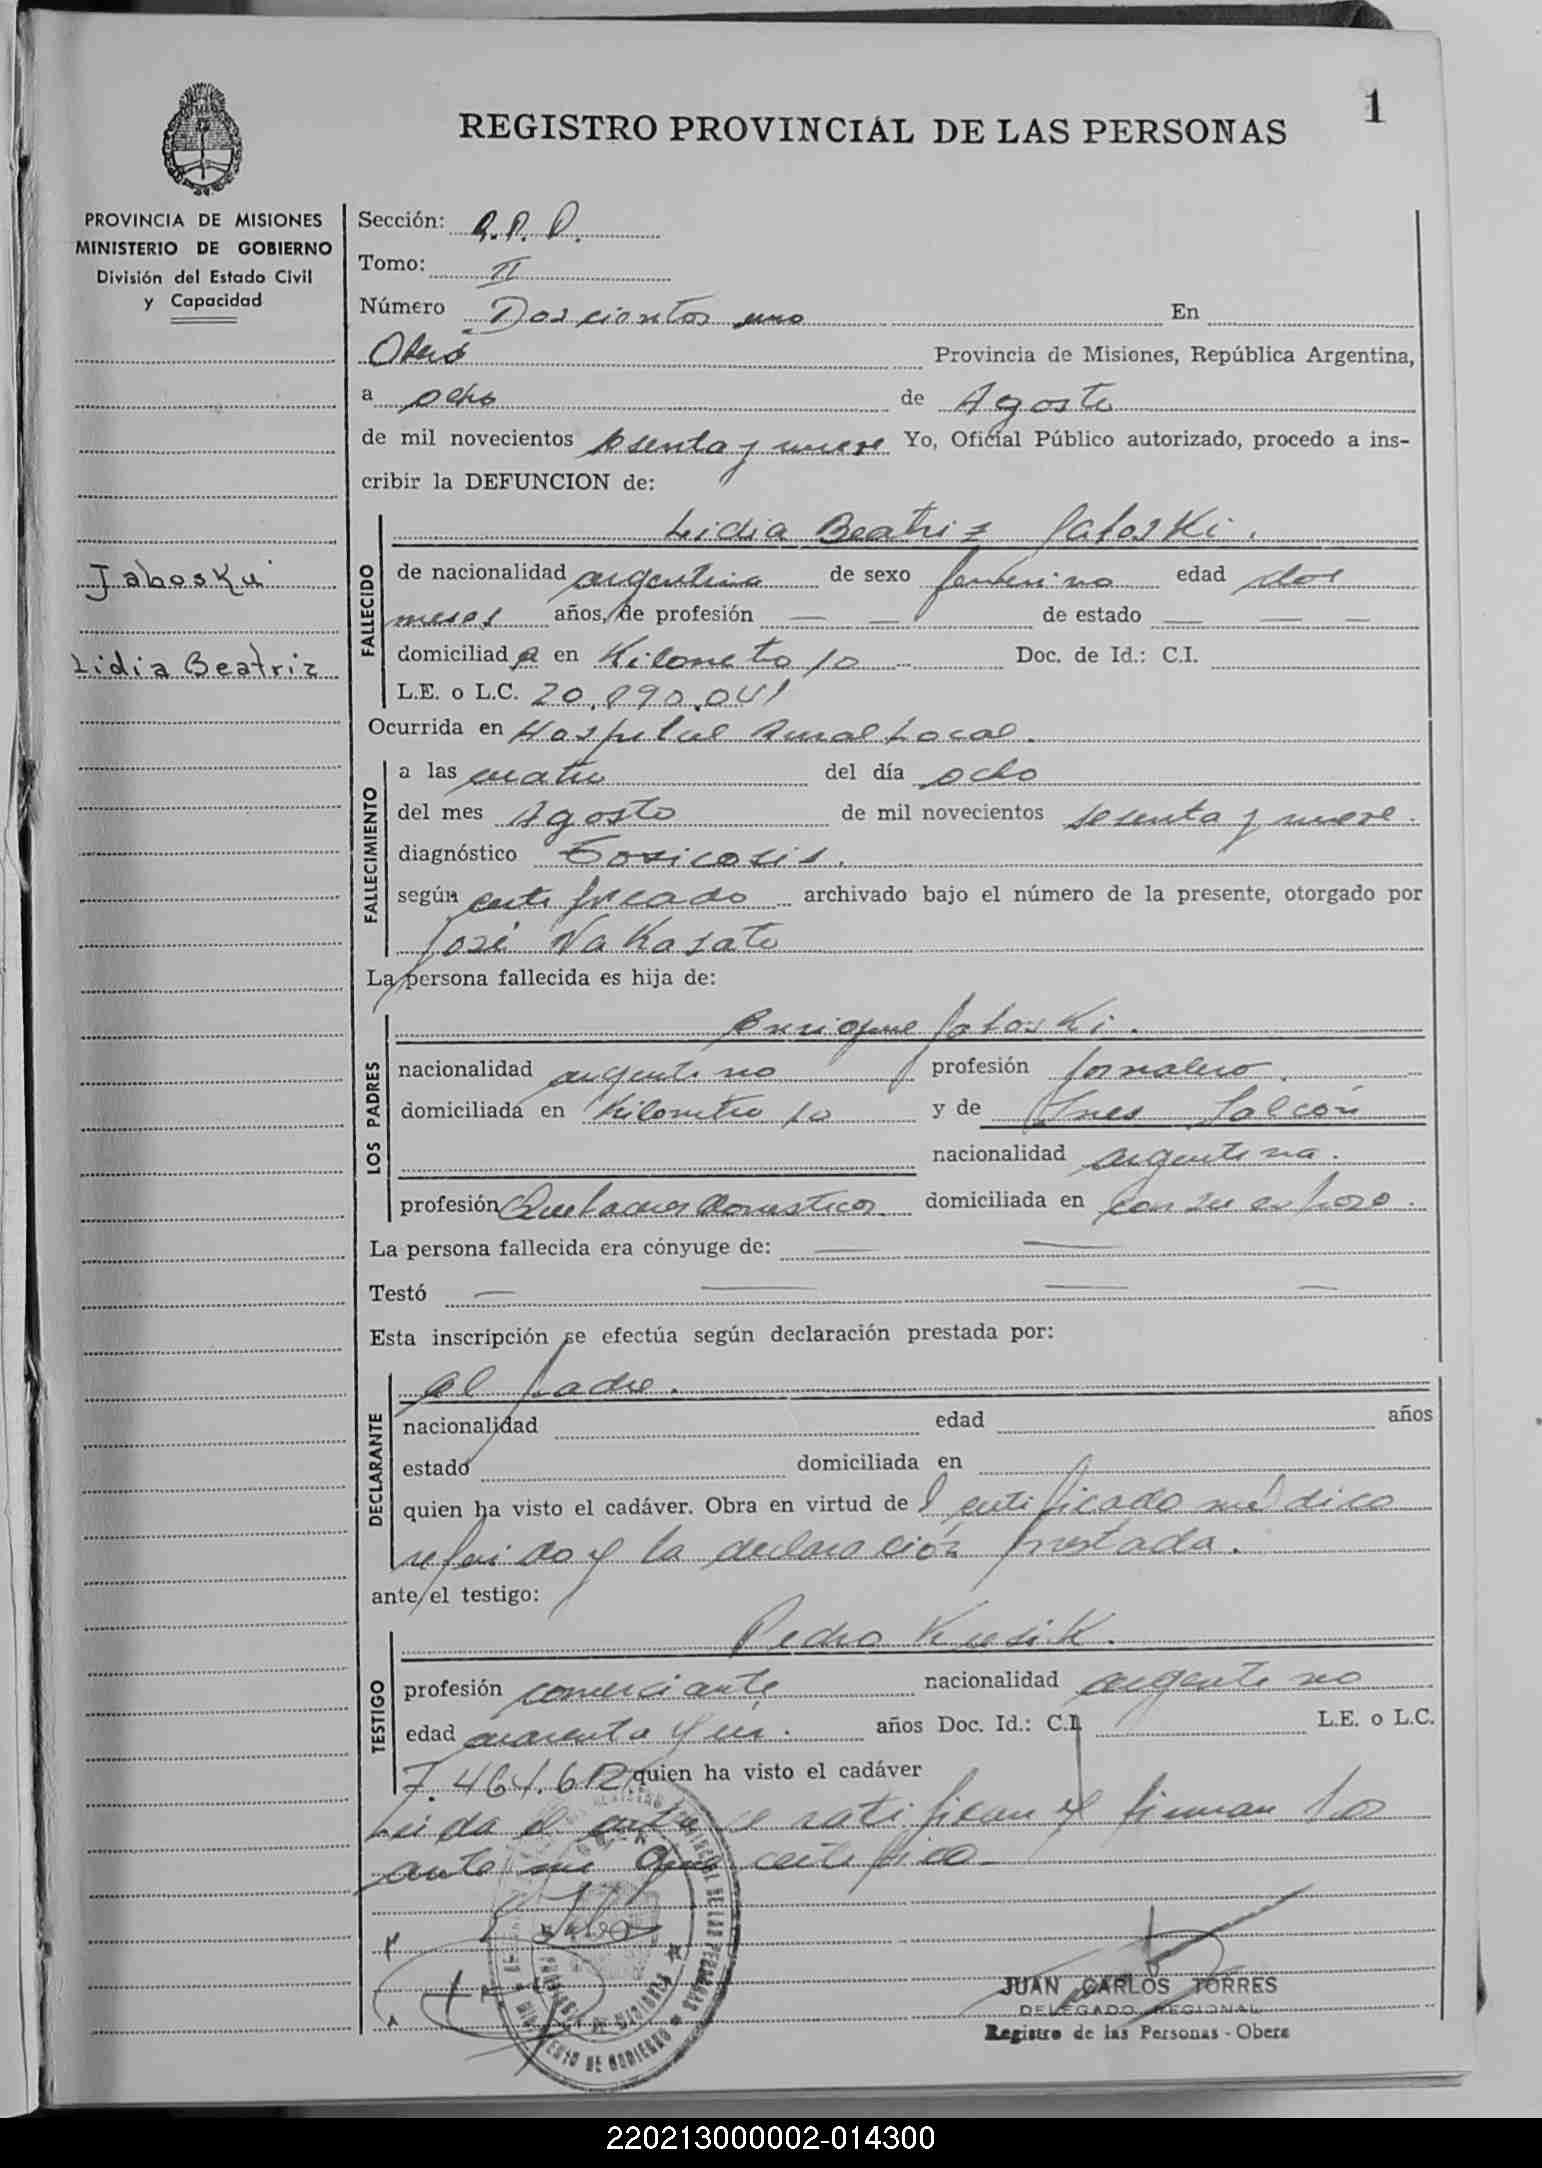 1
REGISTRO PROVINCIAL DE LAS PERSONAS
PROVINCIA DE MISIONES
MINISTERIO DE GOBIERNO
División del Estado Civil
y Capacidad
Jaboski
Lidia Beatriz
Sección:
Tomo: II
Número Doscientos uno En
Oberá Provincia de Misiones, República Argentina,
a ocho de Agosto
de mil novecientos sesenta y nueve Yo, Oficial Público autorizado, procedo a ins-
cribir la DEFUNCION de:
FALLECIDO
Lidia Beatriz Jaboski.
de nacionalidad argentina de sexo femenino edad dos
meses años, de profesión — — de estado — — —
domiciliada en Kilometro 10 Doc. de Id.: C.I.
L.E. o L.C. 20.890.041
Ocurrida en Hospital Rural Local.
FALLECIMIENTO
a las cuatro del día ocho
del mes Agosto de mil novecientos sesenta y nueve.
diagnóstico Toxicosis.
según certificado archivado bajo el número de la presente, otorgado por
José Nakasato
La persona fallecida es hija de:
LOS PADRES
Enrique Jaboski.
nacionalidad argentino profesión jornalero.
domiciliada en Kilometro 10 y de Ines Falcón
nacionalidad argentina.
profesión Quehaceres domesticos domiciliada en con su esposo.
La persona fallecida era cónyuge de: — —
Testó — — — —
Esta inscripción se efectúa según declaración prestada por:
DECLARANTE
el padre.
nacionalidad edad años
estado domiciliada en
quien ha visto el cadáver. Obra en virtud del certificado médico
referido y la declaración prestada.
ante el testigo:
TESTIGO
Pedro Kusik.
profesión comerciante nacionalidad argentino
edad cuarenta y un. años Doc. Id.: C.I. L.E. o L.C.
7.464.612 quien ha visto el cadáver
Leida el acta se ratifican y firman
ante mi que certifico
JUAN CARLOS TORRES
DELEGADO REGIONAL
Registro de las Personas - Obera
220213000002-014300